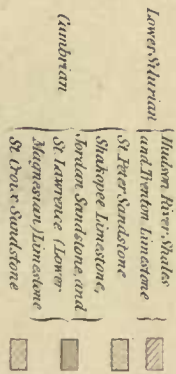 Lower Silurian
Hudson River Shales
and Trenton Limestone
St. Peter Sandstone
Cambrian
Shakopee Limestone,
Jordan Sandstone, and
St. Lawrence (Lower
Magnesian) Limestone
St. Croix Sandstone